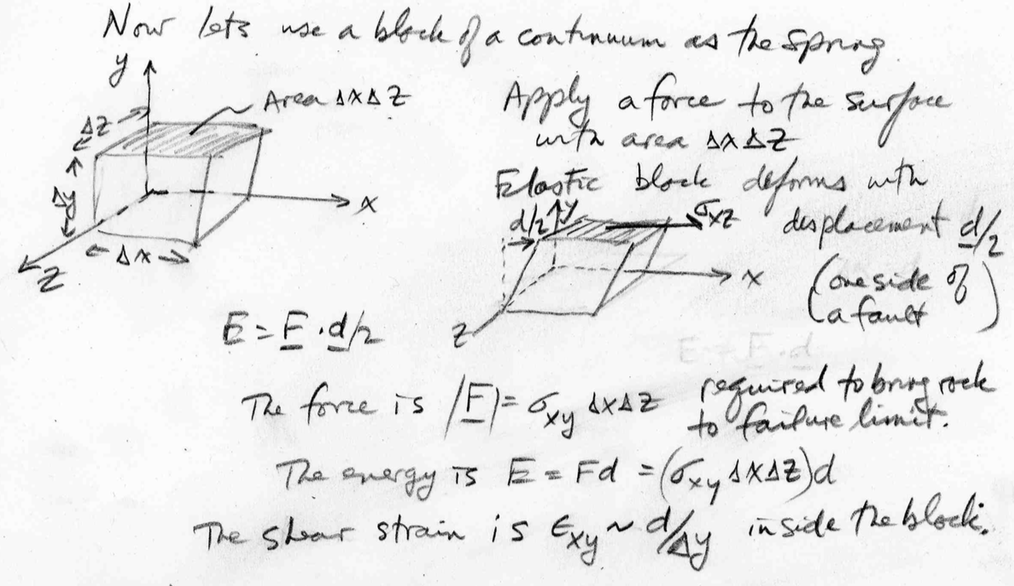 Now lets use a block of a continuum as the spring
y
Area ΔxΔz
Δz
Δy
Δx
x
z
Apply a force to the surface
with area ΔxΔz
Elastic block deforms with
displacement d/2
(one side of
a fault)
d/2
y
σxz
x
z
E = F · d/2
The force is |F| = σxy ΔxΔz required to bring rock
to failure limit.
The energy is E = Fd = (σxy ΔxΔz)d
The shear strain is ϵxy ~ d/Δy inside the block.